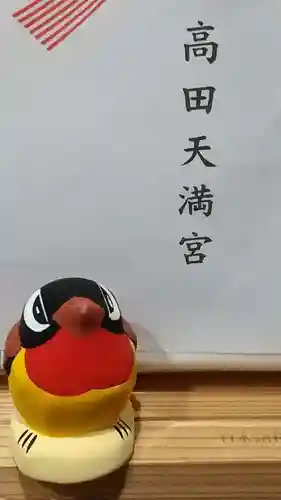 高田天満宮